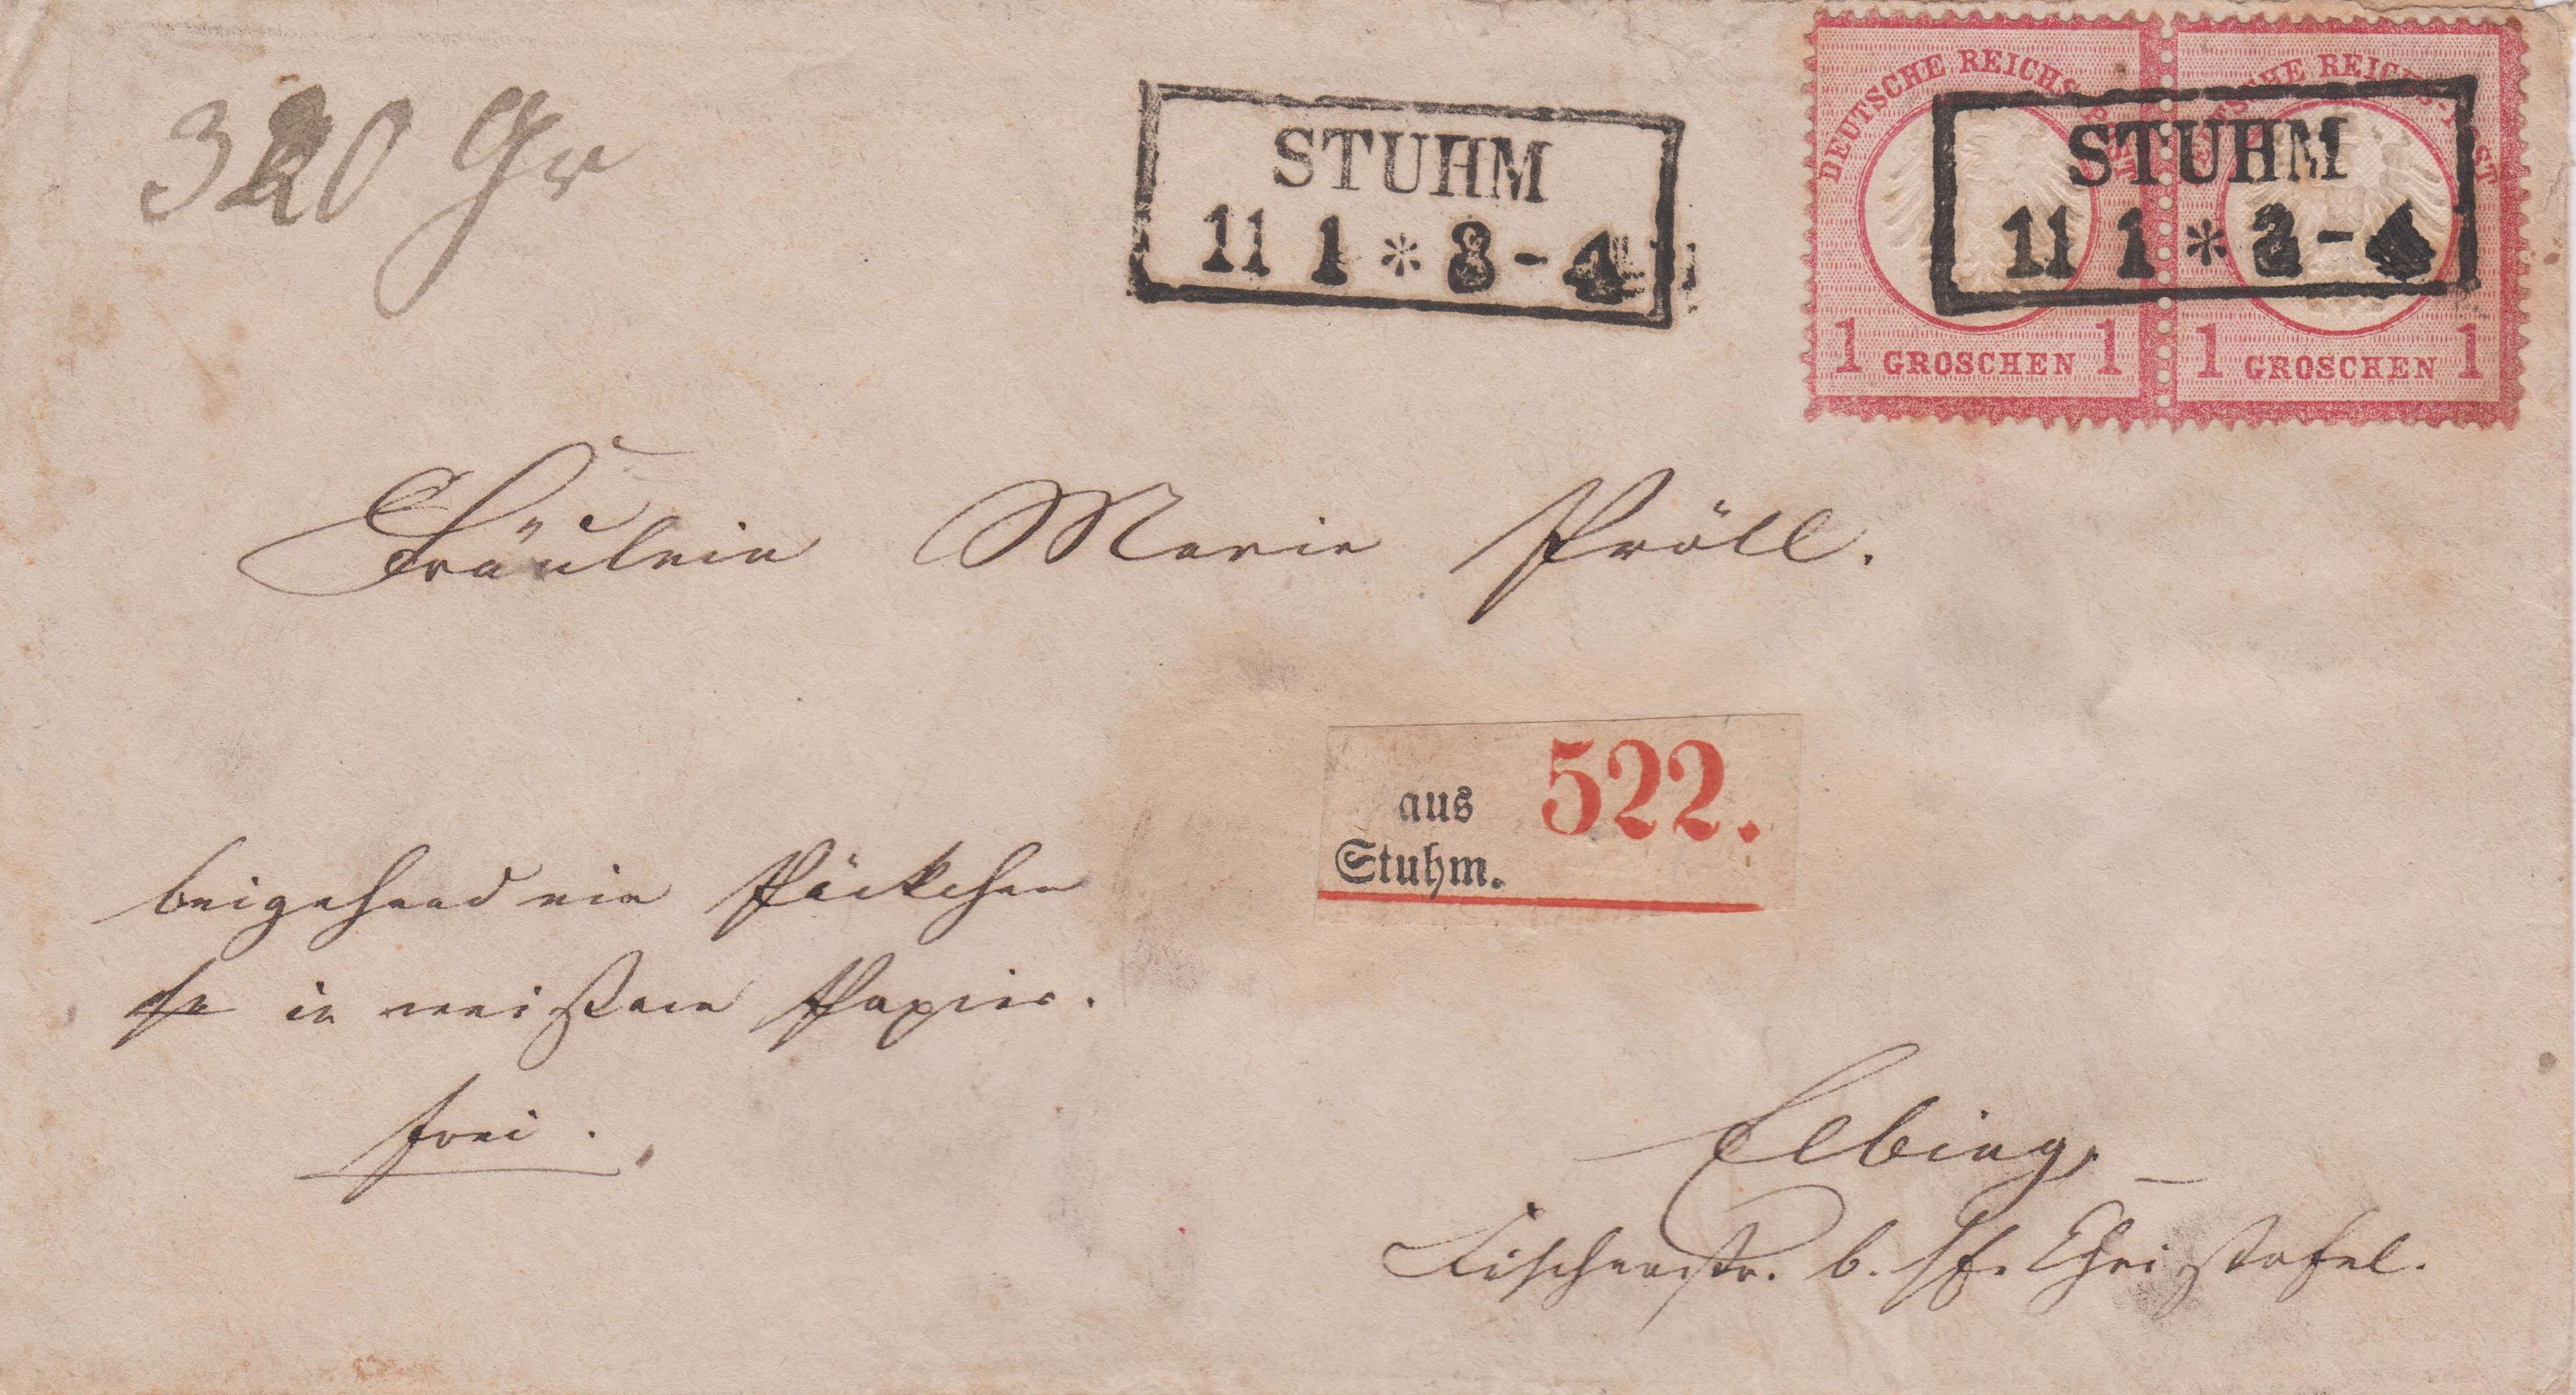 320 Gr
STUHM
11 1 * 3-4
DEUTSCHE REICHS-POST
1 GROSCHEN 1
DEUTSCHE REICHS-POST
1 GROSCHEN 1
STUHM
11 1 * 3-4
Fräulein Marie Pröll.
aus 522.
Stuhm.
beigehend ein Päckchen
in weißem Papier.
frei.
Elbing.
Fischerstr. b. Christofel.